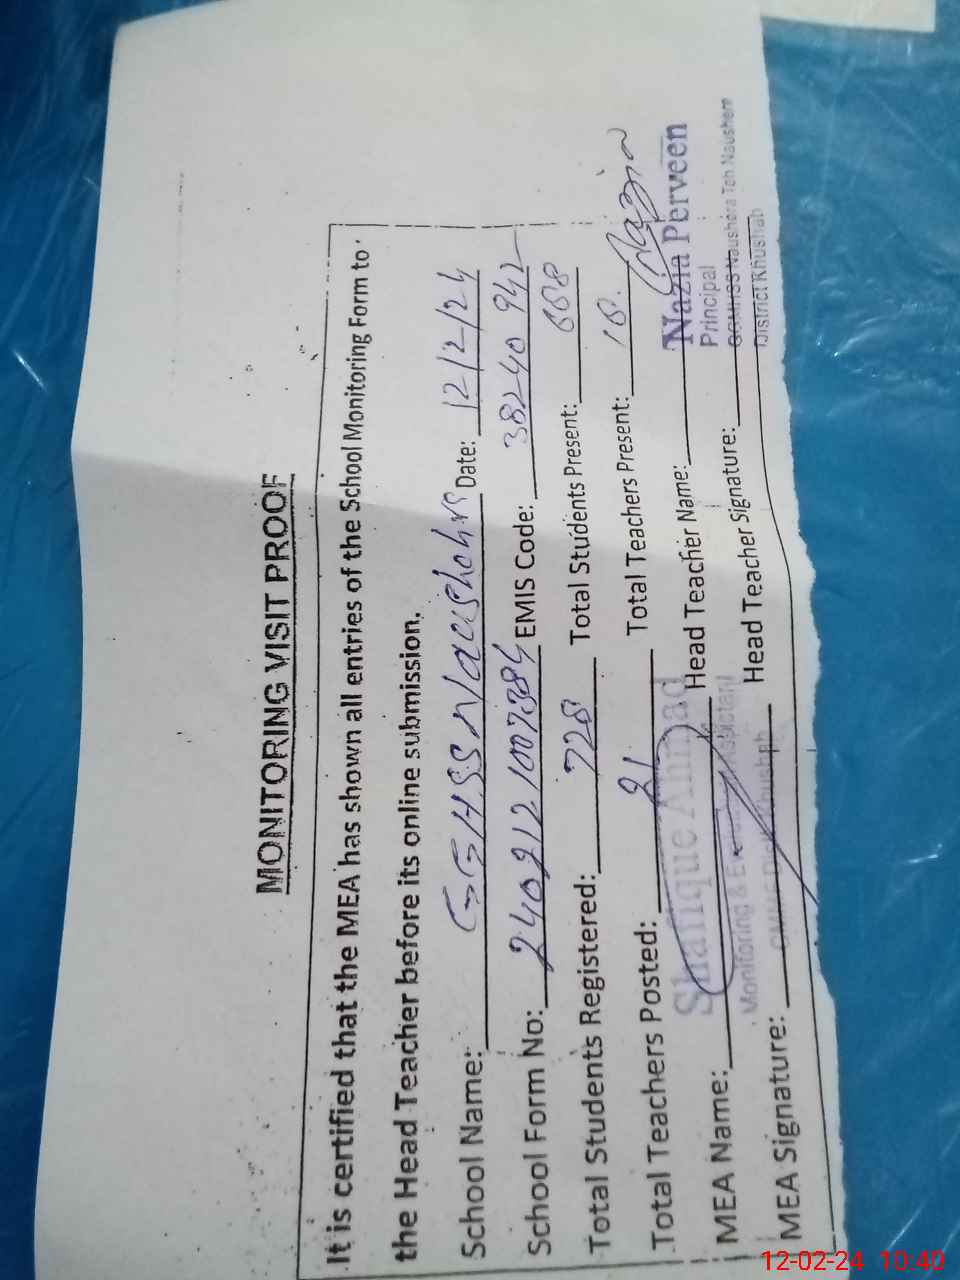 MONITORING VISIT PROOF
It is certified that the MEA has shown all entries of the School Monitoring Form to
the Head Teacher before its online submission.
School Name: GGHSS Naushehra Date: 12/2/24
School Form No: EMIS Code: 38240 942
Total Students Registered: 728 Total Students Present: 668
Total Teachers Posted: 21 Total Teachers Present: 18.
MEA Name: Shafique Ahmad Head Teacher Name: Nazia Perveen
Monitoring & Principal
MEA Signature: Head Teacher Signature: GGMHSS Naushera Teh Naushera
District Khushab
12-02-24 10:40